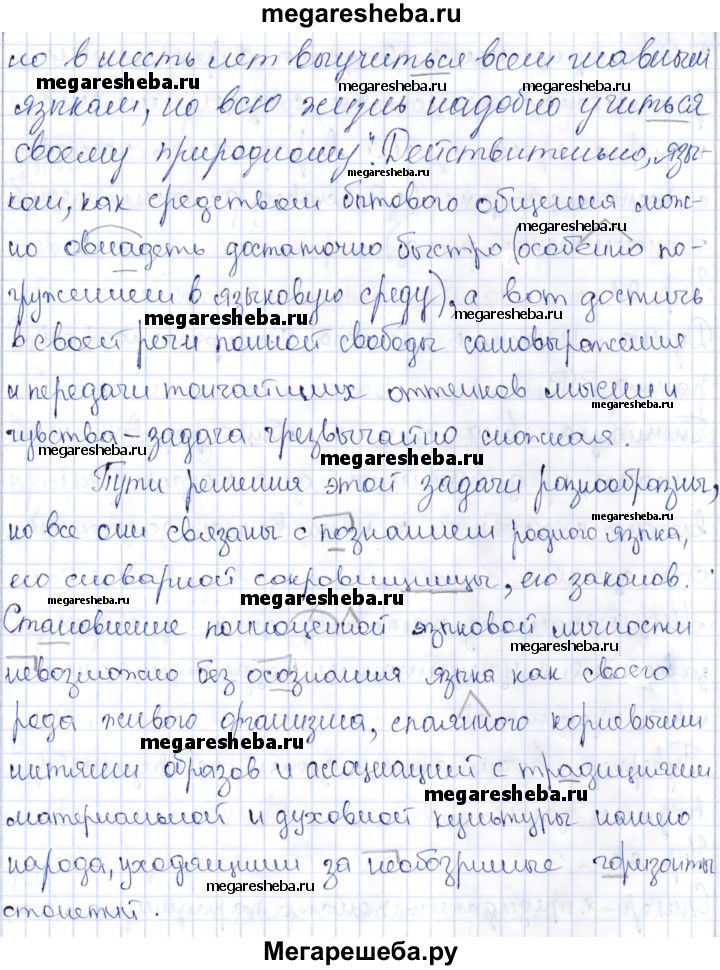 megaresheba.ru
но в шесть лет выучиться всем главным
megaresheba.ru megaresheba.ru megaresheba.ru
языкам, но всю жизнь надобно учиться
своему природному". Действительно, язы-
megaresheba.ru
ком, как средством бытового общения мож-
megaresheba.ru
но овладеть достаточно быстро (особенно по-
гружением в языковую среду), а вот достичь
megaresheba.ru megaresheba.ru
в своей речи полной свободы самовыражения
и передачи тончайших оттенков мысли и
megaresheba.ru
чувства – задача чрезвычайно сложная.
megaresheba.ru megaresheba.ru
Пути решения этой задачи разнообразны,
megaresheba.ru
но все они связаны с познанием родного языка,
его словарной сокровищницы, его законов.
megaresheba.ru megaresheba.ru megaresheba.ru
Становление полноценной языковой личности
megaresheba.ru
невозможно без осознания языка как своего
рода живого организма, спаянного корневыми
megaresheba.ru
нитями образов и ассоциаций с традициями
megaresheba.ru
материальной и духовной культуры нашего
народа, уходящими за необозримые горизонты
megaresheba.ru megaresheba.ru
столетий.
Мегарешеба.ру